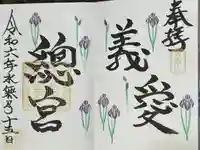 奉拝
愛
義
總宮
令和六年水無月十五日